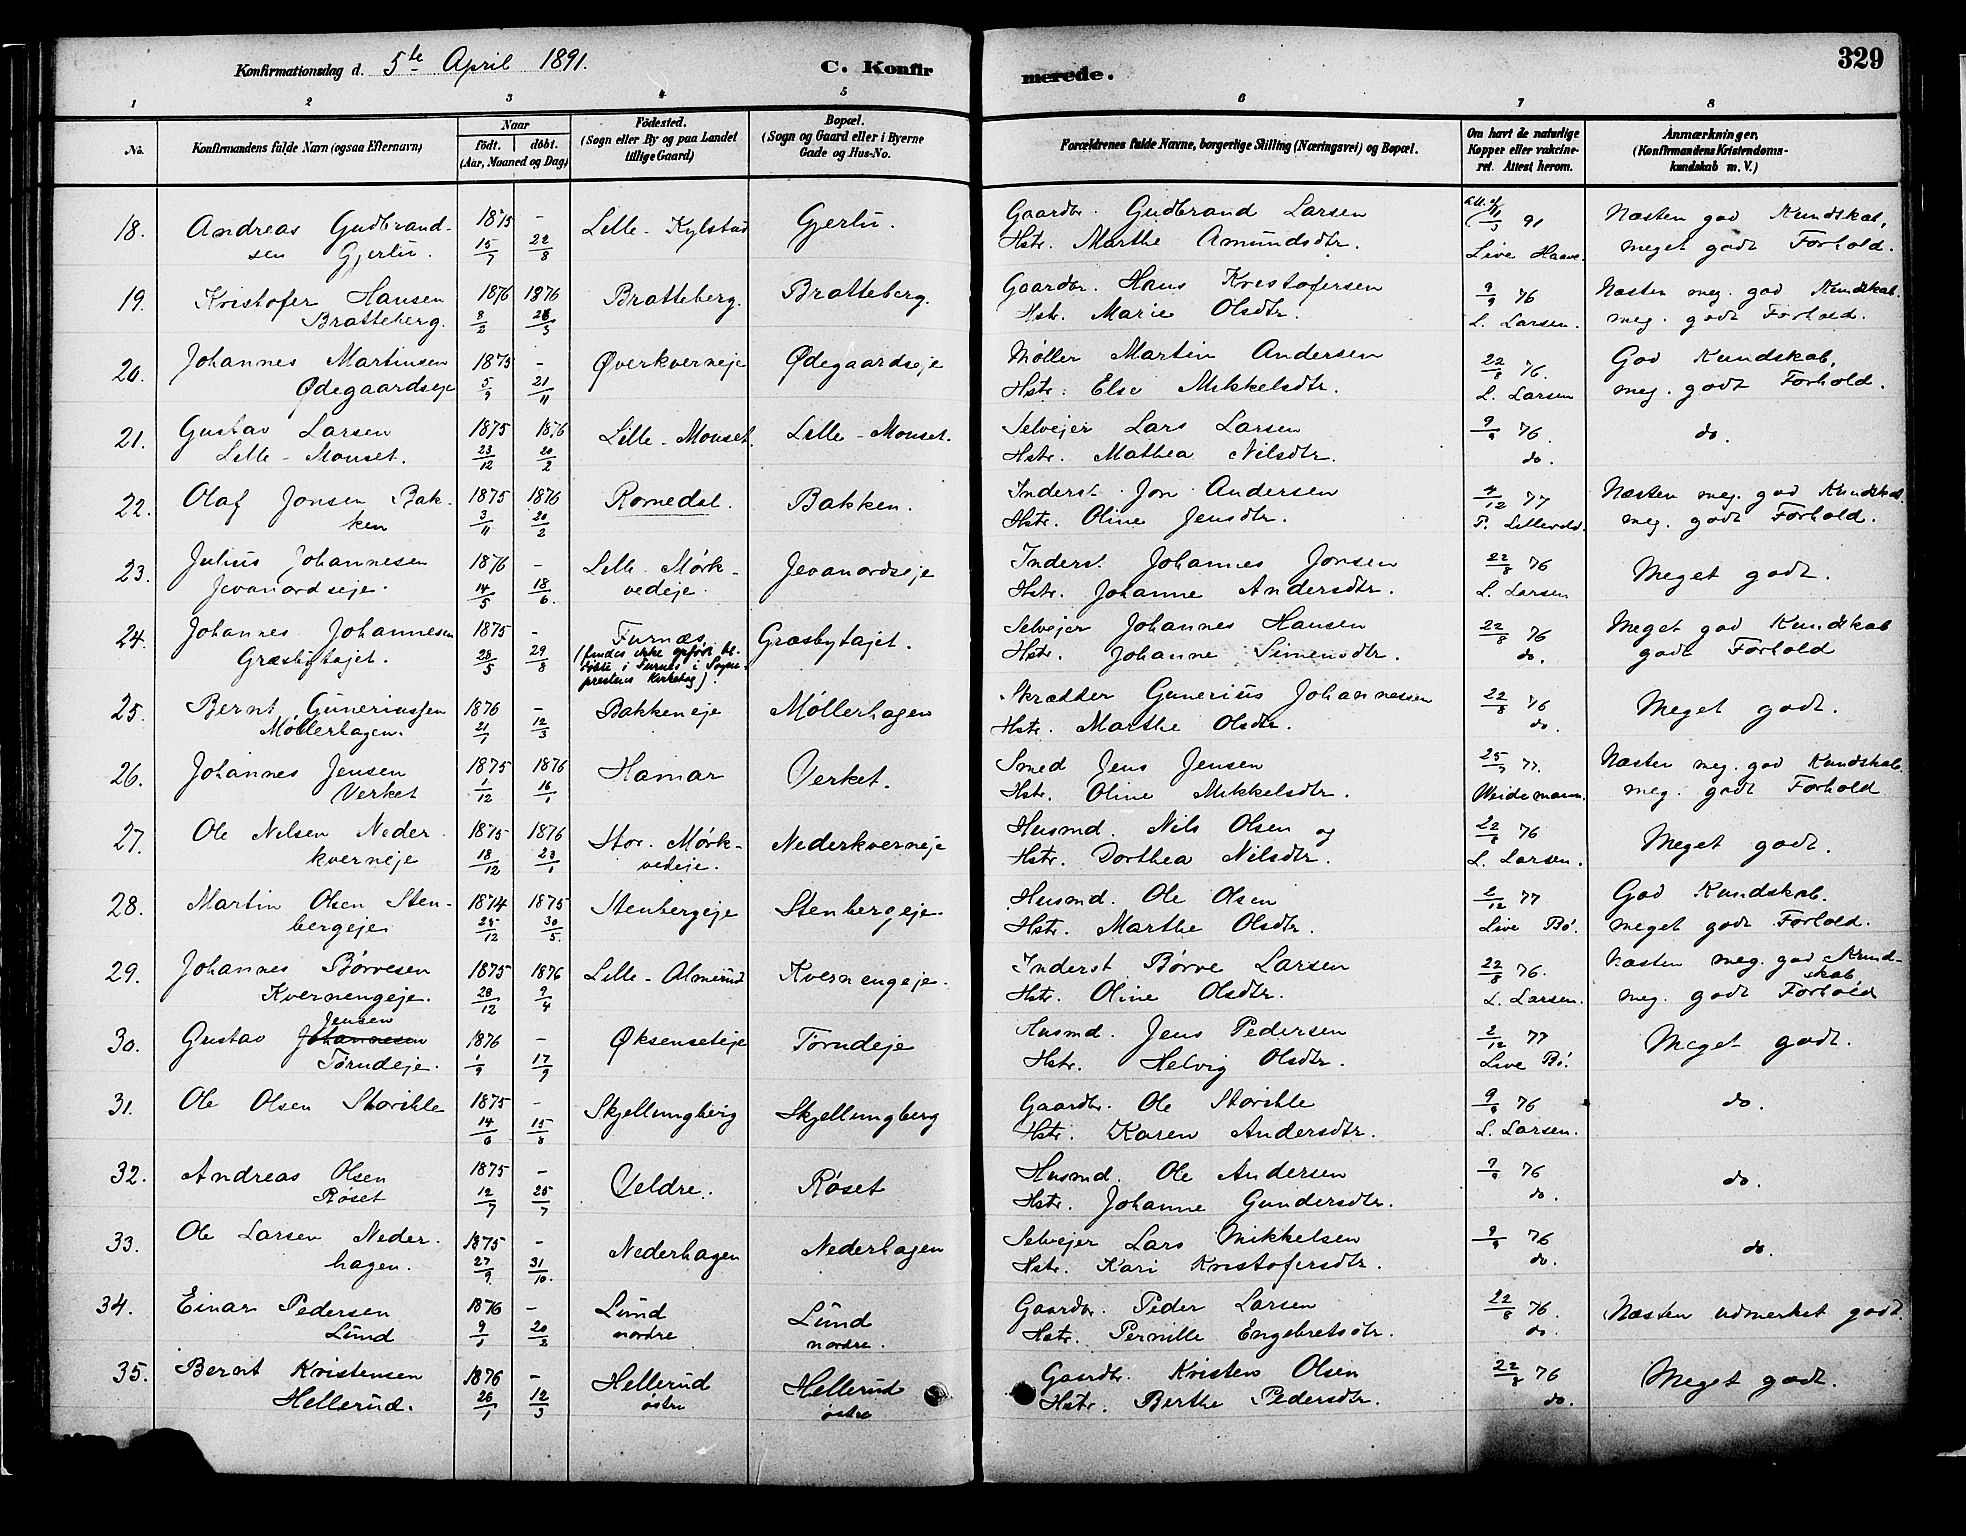 Konfirmationsdag d. 5te April 1891. C. Konfirmerede. 329
1 2 3 4 5 6 7 8
No. Konfirmandens fulde Navn (ogsaa Efternavn) Naar födt. döbt. (Aar, Maaned og Dag) Födested. (Sogn eller By og paa Landet tillige Gaard) Bopæl. (Sogn og Gaard eller i Byerne Gade og Hus-No.) Forældrenes fulde Navne, borgerlige Stilling (Næringsvei) og Bopæl. Om havt de naturlige Kopper eller vakcineret. Attest herom. Anmærkninger. (Konfirmandens Kristendomskundskab m. V.)
18. Andreas Gudbrand- 1875 - Lille-Kylstad Gjerlu. Gaardbr. Gudbrand Larsen 91 Næsten god Kundskab,
sen Gjerlu. 15/7 22/8 Hstr. Marthe Amundsdtr. Live Haave. meget godt Forhold.
19. Kristofer Hansen 1876 1876 Bratteberg. Bratteberg. Gaardbr. Hans Kristofersen 9/9 76 Næsten meg. god Kundskab.
Bratteberg. 8/2 26/3 Hstr. Marie Olsdtr. L. Larsen. meg. godt Forhold.
20. Johannes Martinsen 1875 - Øverkverneje Ødegaardseje Møller Martin Andersen 22/8 76. God Kundskab,
Ødegaardseje 5/9 21/11 Hstr. Else Mikkelsdtr. L. Larsen meg. godt Forhold.
21. Gustav Larsen 1875 1876 Lille-Monset. Lille-Monset. Selvejer Lars Larsen 9/9 76. do.
Lille-Monset. 23/12 20/2 Hstr. Mathea Nilsdtr. do.
22. Olaf Jonsen Bak- 1875 1876 Romedal. Bakken. Inderst Jon Andersen 4/12 77 Næsten meg. god Kundskab.
ken 3/11 20/2 Hstr. Oline Jensdtr. P. Lillevold. meg. godt Forhold.
23. Julius Johannesen 1876 - Lille-Mørk- Jevanordseje Inderst Johannes Jonsen 22/8 76 Meget godt.
Jevanordseje. 14/5 18/6. vedeje. Hstr. Johanne Andersdtr. L. Larsen
24. Johannes Johannesen 1875 - Furnæs Græsbytajet. Selvejer Johannes Hansen 22/8 76 Meget god Kundskab
Græsbytajet. 28/5 29/8 (findes ikke opført bl. Hstr. Johanne Simensdtr. do. godt Forhold
døbte i Furnes i Sogne-
prestens Kirkebog).
25. Bernt Gunerinssen 1876 - Bakkeneje Møllerhagen Skrædder Gunerius Johannessen 22/8 76 Meget godt.
Møllerhagen. 21/1 12/3 Hstr. Marthe Olsdtr. do.
26. Johannes Jensen 1875 1876 Hamar Verket. Smed Jens Jensen 25/9 77. Næsten meg. god Kundskab.
Verket 1/12 16/1 Hstr. Oline Mikkelsdtr. Weidemann. meg. godt Forhold
27. Ole Nilsen Neder- 1875 1876 Stor-Mørk- Nederkverneje Husmd. Nils Olsen og 22/8 76 Meget godt.
kverneje 18/12 23/1 vedeje. Hstr. Dorthea Nilsdtr. L. Larsen.
28. Martin Olsen Sten- 1874 1875 Stenbergeje Stenbergeje. Husmd. Ole Olsen 2/12 77 God Kundskab.
bergeje 25/12 30/5. Hstr. Marthe Olsdtr. Live Bø. meget godt Forhold.
29. Johannes Børvesen 1875 1876 Lille-Almerud Kvernengeje. Inderst Børve Larsen 22/8 76. Næsten meg. god Kund-
skab
Kvernengeje. 20/12 9/4 Hstr. Oline Olsdtr. L. Larsen. meg. godt Forhold
Jensen
30. Gustav Johannesen 1876 - Øksenseteje Tørudeje Husmd. Jens Pedersen 2/12 77 Meget godt.
Tørudeje. 1/9 17/9 Hstr. Helvig Olsdtr. Live Bø.
31. Ole Olsen Storihle 1875 - Skjellungberg Skjellungberg Gaardbr. Ole Storihle 9/9 76 do.
14/6 15/8 Hstr. Karen Andersdtr. L. Larsen.
32. Andreas Olsen 1875 - Veldre. Røset Husmd. Ole Andersen 9/9 76 do.
Røset 12/7 25/7 Hstr. Johanne Gundersdtr. do.
33. Ole Larsen Neder- 1875 - Nederhagen Nederhagen Selvejer Lars Mikkelsen 9/9 76 do.
hagen. 27/9 31/10. Hstr. Kari Kristofersdtr. do.
34. Einar Pedersen 1876 - Lund Lund Gaardbr. Peder Larsen 22/8 76. Næsten udmerket godt.
Lund 9/1 20/2 nordre nordre. Hstr. Pernille Engebretsdtr. do.
35. Bernt Kristensen 1876 - Hellerud Hellerud Gaardbr. Kristen Olsen 22/8 76 Meget godt.
Hellerud. 26/1 12/3 østre østre Hstr. Berthe Pedersdtr. do.